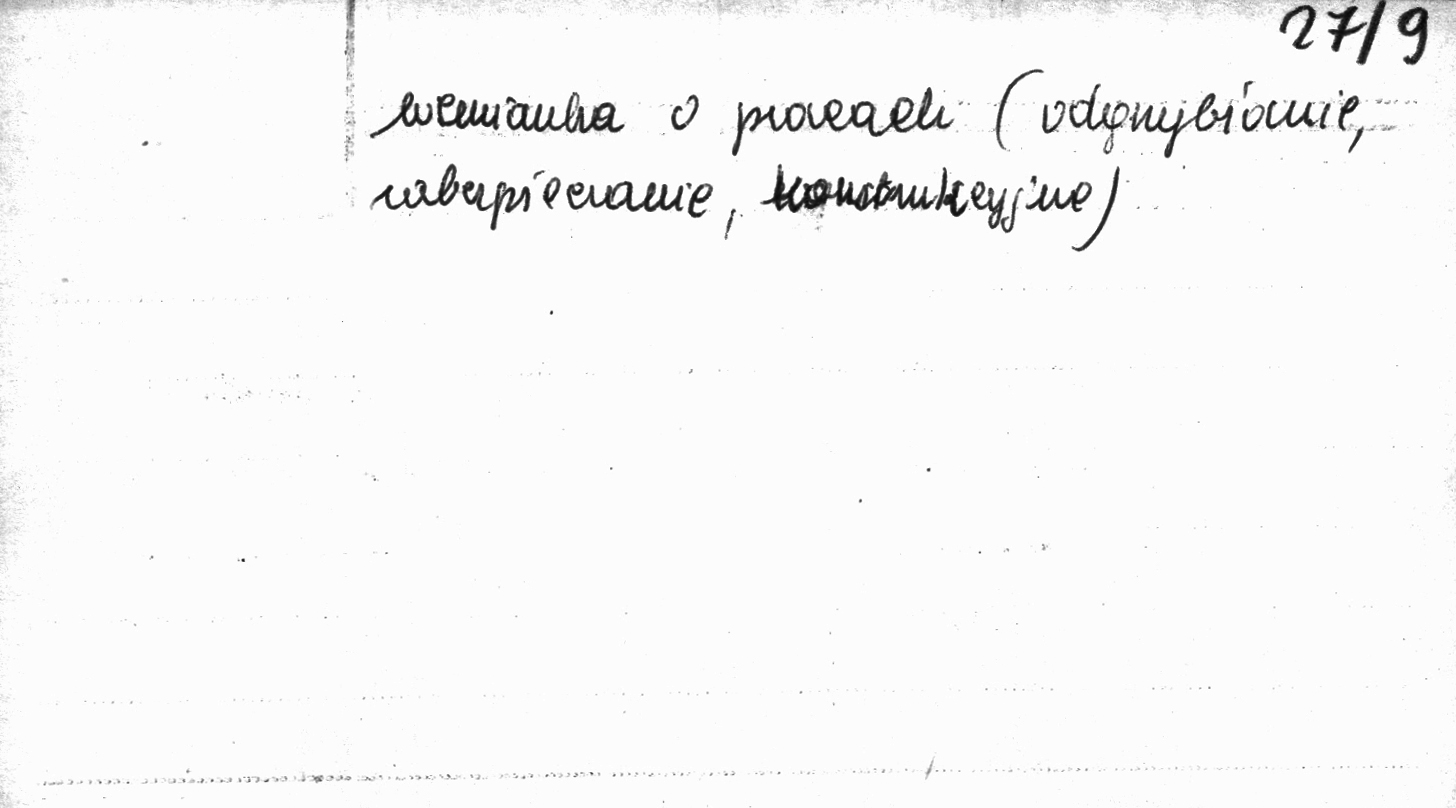 27/9
wzmianka o pracach (odgrzybianie,
zabezpieczanie, konstrukcyjne)